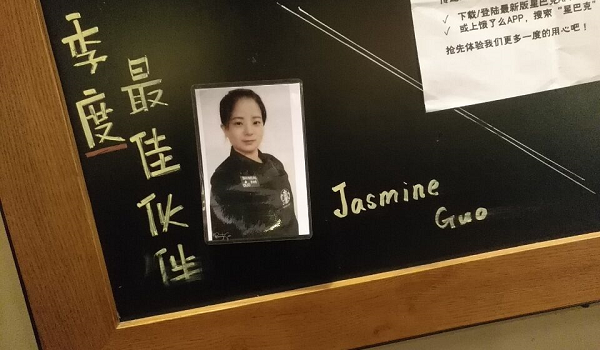 季度
最佳伙伴
Jasmine
Guo
✓ 下载/登陆最新版星巴克
✓ 或上饿了么APP，搜索“星巴克
抢先体验我们更多一度的用心吧！